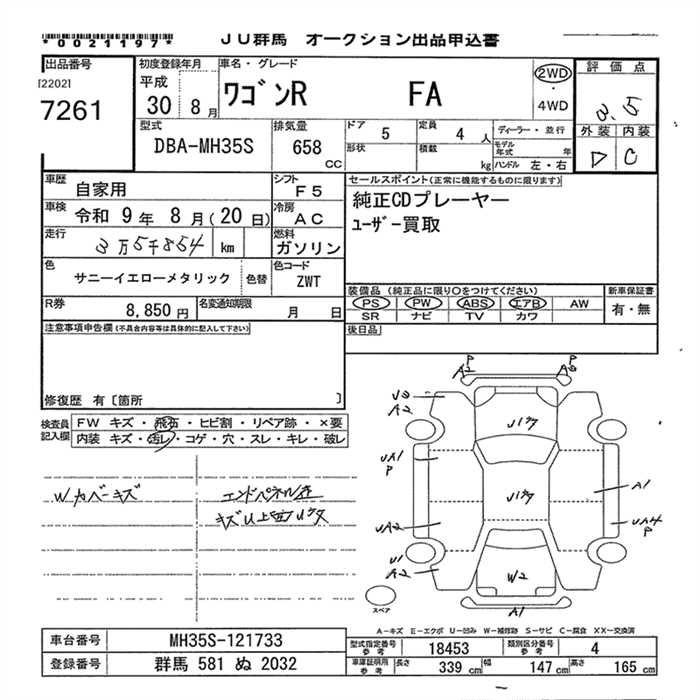 *0021197*
JU群馬 オークション出品申込書
出品番号
7261
初度登録年月
平成
30年 8月
車名・グレード
ワゴンR FA
2WD
・
4WD
評価点
3.5
外装 内装
D C
型式
DBA-MH35S
排気量
658
CC
ドア 5
形状
定員 4 人
積載 kg
ディーラー・並行
モデル年式 年
ハンドル 左・右
車歴
自家用
シフト
F5
車検
令和 9年 8月(20日)
冷房
AC
走行
3万5千854 km
燃料
ガソリン
色
サニーイエローメタリック
色替
色コード
ZWT
R券
8,850円
名変通知期限
月 日
セールスポイント(正常に機能するものに限ります)
純正CDプレーヤー
ユーザー買取
装備品(純正品に限り○をつけてください)
PS PW ABS エアB AW
SR ナビ TV カワ
新車保証書
有・無
後日品
注意事項申告欄(不具合内容等は具体的に記入して下さい)
修復歴 有〔箇所 〕
検査員
記入欄
FW キズ・飛石・ヒビ割・リペア跡・×要
内装 キズ・汚レ・コゲ・穴・スレ・キレ・破レ
Wカバーキズ
キズU上面Uクス
A2 P
P
A2
UA1
P
UA2
U1
A2
A1
UA4
P
W2
A1
スペア
A-キズ E-エクボ U-凹み W-補修跡 S-サビ C-腐食 XX-交換済
車台番号
MH35S-121733
登録番号
群馬 581 ぬ 2032
型式指定番号
参考
18453
類別区分番号
参考
4
車庫証明用
参考
長さ 339 cm
幅 147 cm
高さ 165 cm